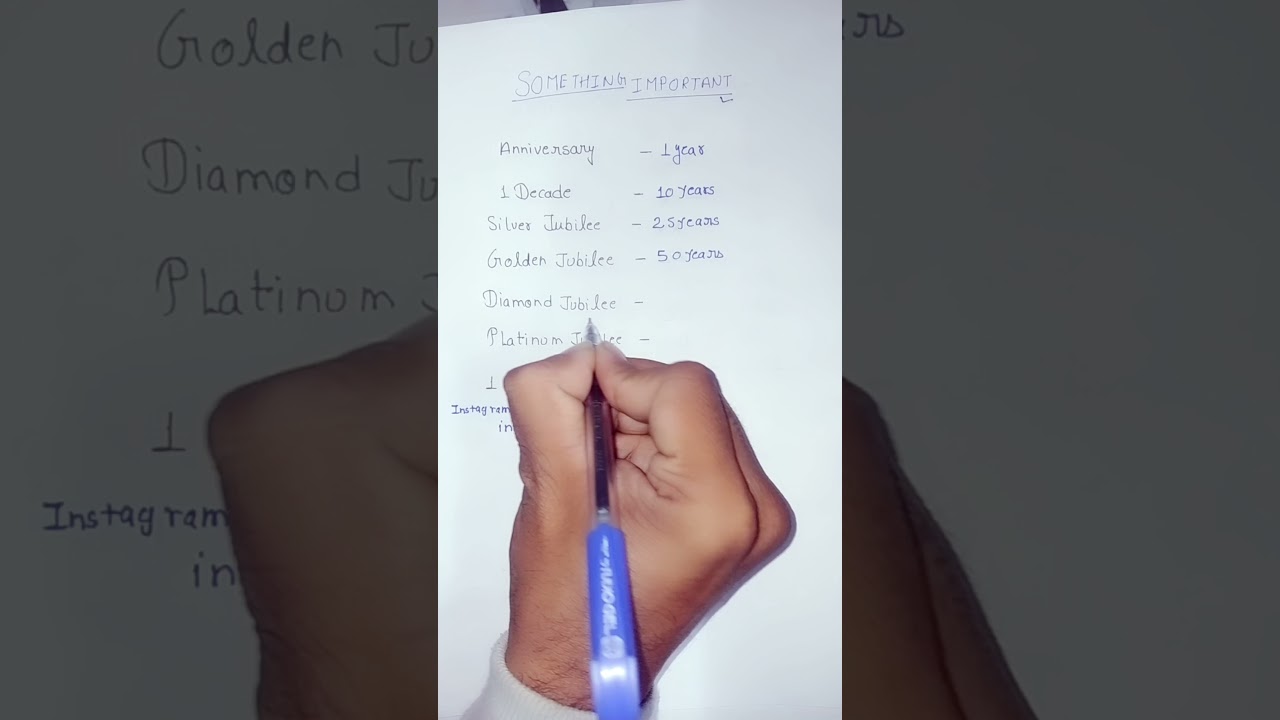 SOMETHING IMPORTANT
Anniversary - 1 year
1 Decade - 10 years
Silver Jubilee - 25 years
Golden Jubilee - 50 years
Diamond Jubilee -
Platinum Jubilee -
1
Instagram
in